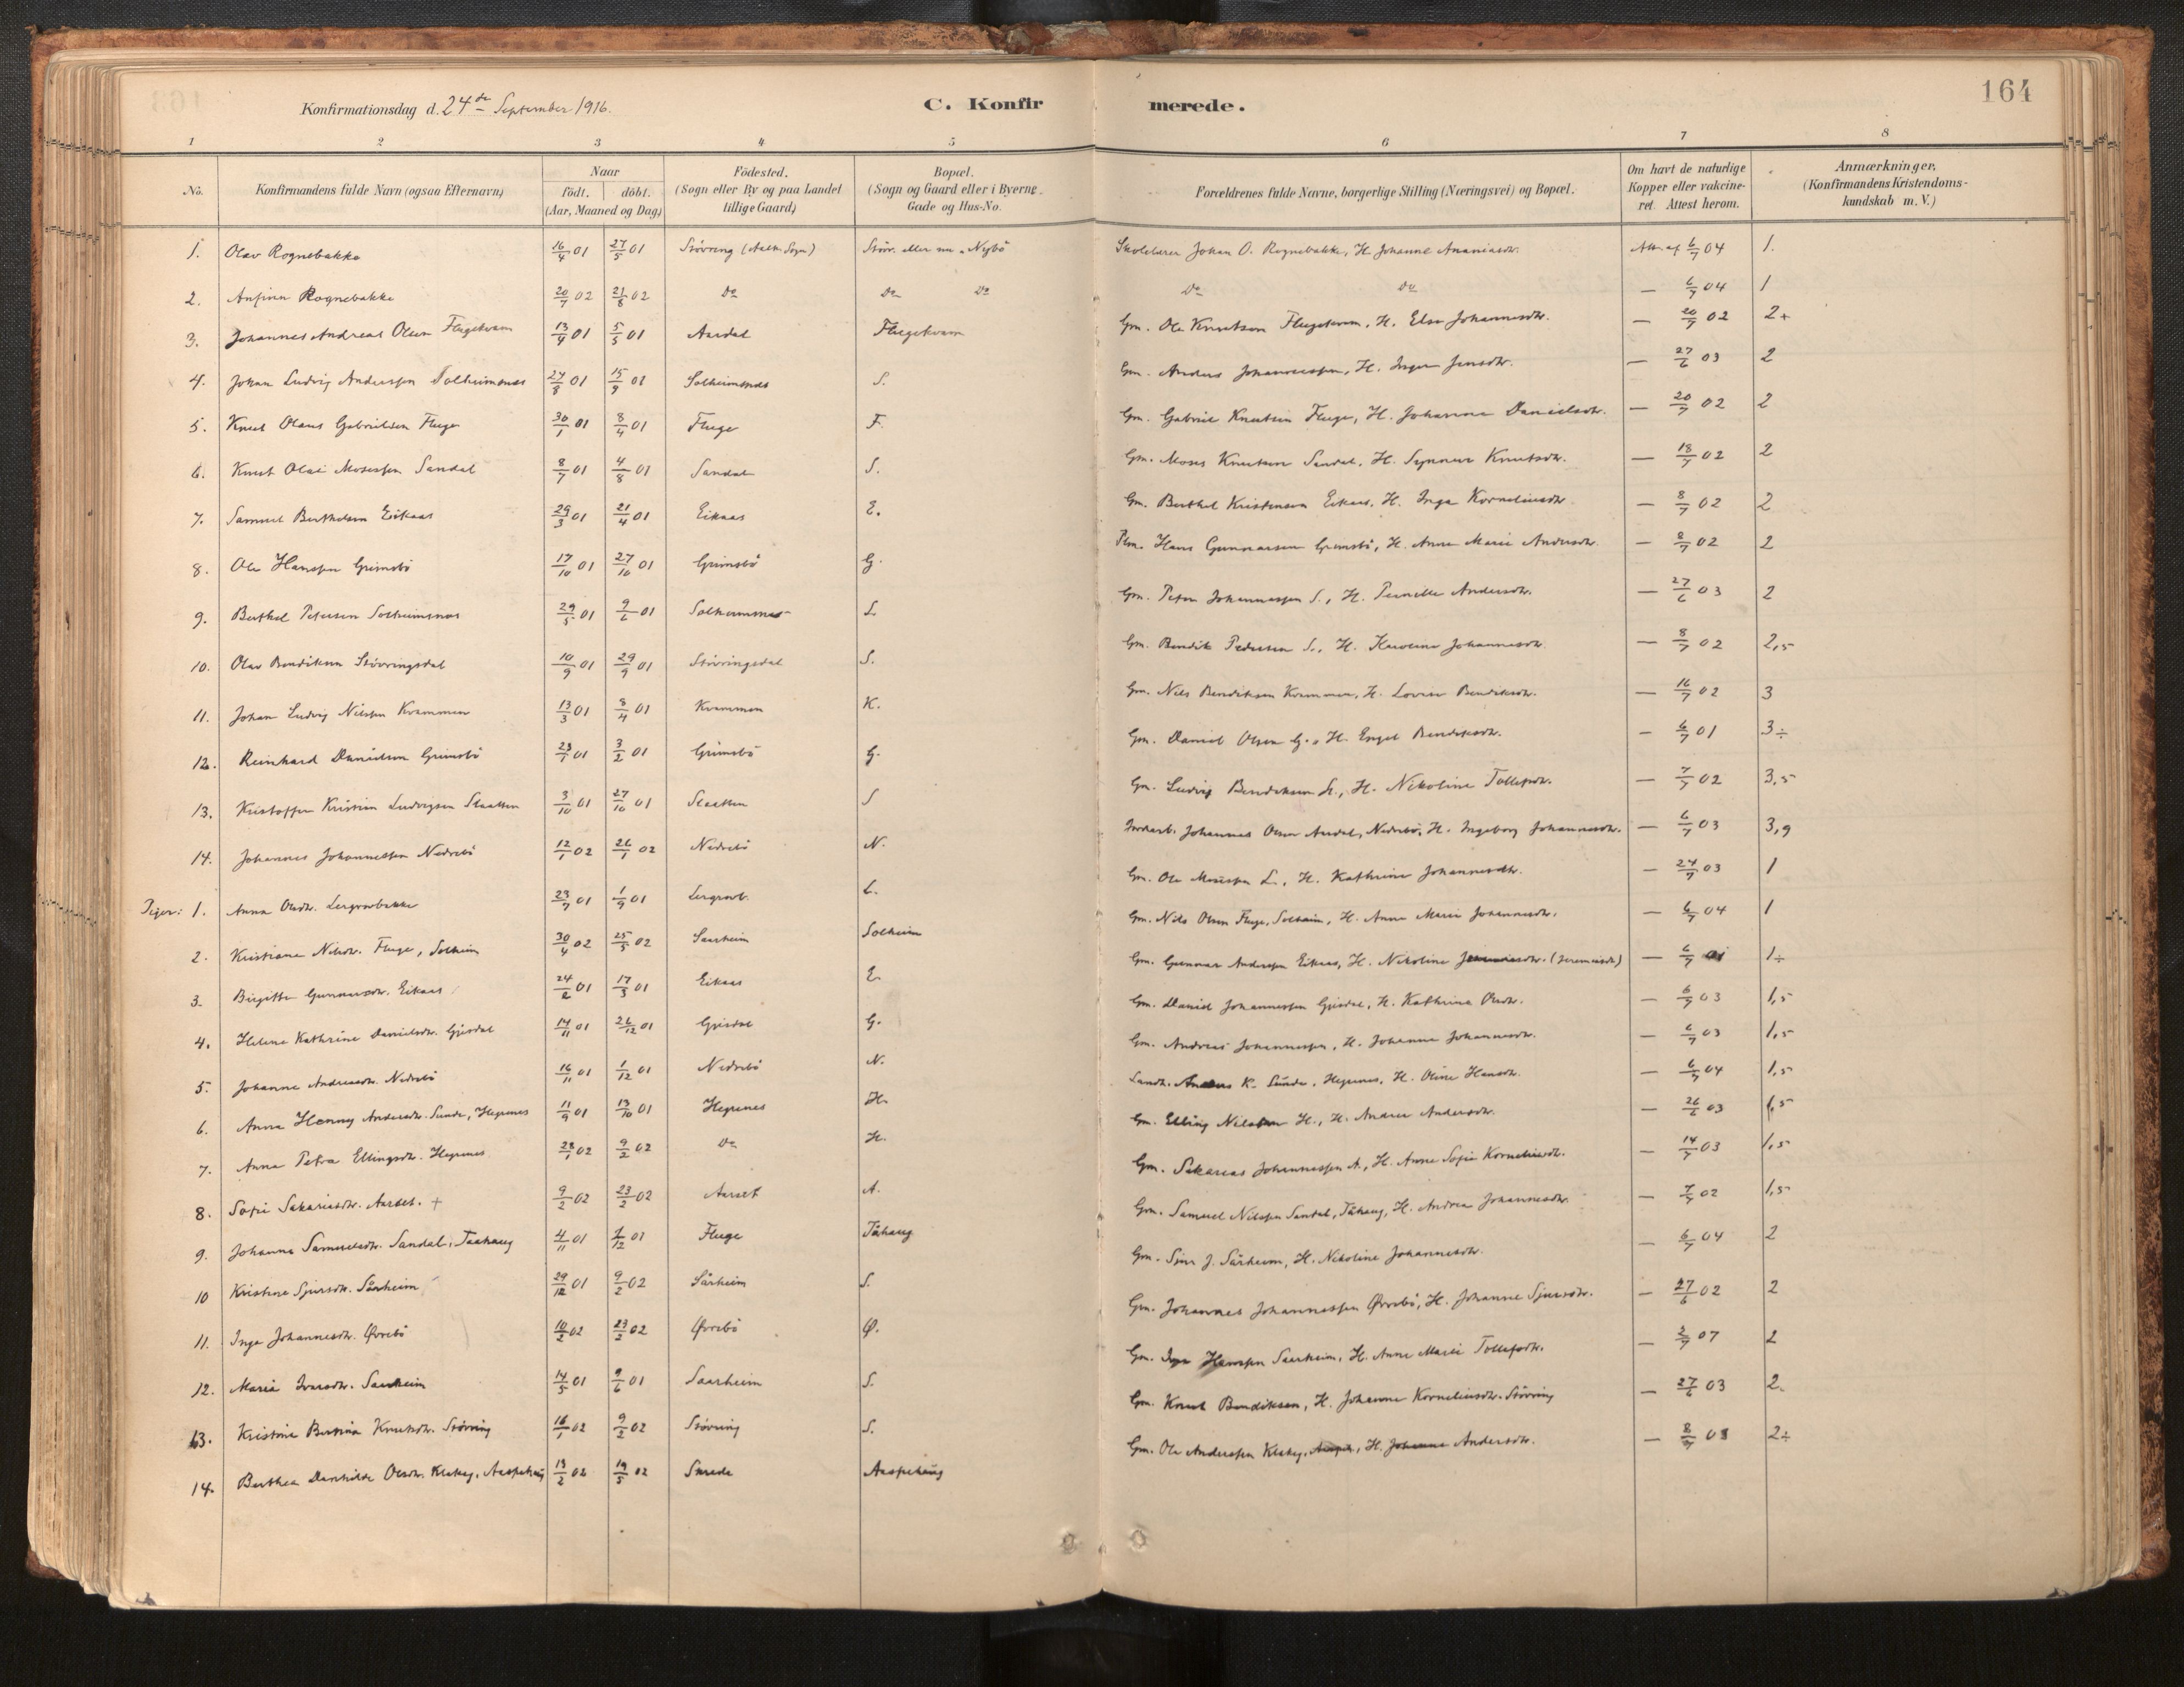 164
Konfirmationsdag d. 24de September 1916. C. Konfirmerede.
1 2 3 4 5 6 7 8
No. Konfirmandens fulde Navn (ogsaa Efternavn) Naar födt. döbt. (Aar, Maaned og Dag.) Födested. (Sogn eller By og paa Landet tillige Gaard) Bopæl. (Sogn og Gaard eller i Byerne Gade og Hus-No. Forældrenes fulde Navne, borgerlige Stilling (Næringsvei) og Bopæl. Om havt de naturlige Kopper eller vakcineret. Attest herom. Anmærkninger, (Konfirmandens Kristendomskundskab m. V.)
1. Olav Rognebakke 16/4 01 27/5 01 Stövring (Aalh. Sogn) Stövr. eller nu Nybö Skolelærer Johan O. Rognebakke, H. Johanne Ananiasdtr. Att. af 6/7 04 1.
2. Anfinn Rognebakke 20/7 02 21/8 02 Do Do Do Do Do — 6/7 04 1
3. Johannes Andreas Olsen Flugekvam 13/4 01 5/5 01 Aardal Flugekvam Gm. Ole Knutsen Flugekvam, H. Else Johannesdtr. — 20/7 02 2+
4. Johan Ludvig Anderssen Solheimsnes 24/8 01 15/9 01 Solheimsnes S. Gm. Anders Johannessen, H. Inger Jensdtr. — 27/6 03 2
5. Knut Olaus Gabrielsen Fluge 30/1 01 8/4 01 Fluge F. Gm. Gabriel Knutsen Fluge, H. Johanna Danielsdtr. — 20/7 02 2
6. Knut Olai Mosessen Sandal 8/7 01 4/8 01 Sandal S. Gm. Moses Knutsen Sandal, H. Synneve Knutsdtr. — 18/7 02 2
7. Samuel Berthelsen Eikaas 29/3 01 21/4 01 Eikaas E. Gm. Berthel Kristensen Eikaas, H. Inga Korneliusdtr. — 8/7 02 2
8. Ole Hanssen Grimsbö 17/10 01 27/10 01 Grimsbö G. Plm. Hans Gunnarsen Grimsbö, H. Anne Marie Andersdtr. — 8/7 02 2
9. Berthel Petersen Solheimsnes 29/5 01 9/6 01 Solheimsnes S. Gm. Peter Johannessen S., H. Pernille Andersdtr. — 27/6 03 2
10. Olav Bendiksen Stövringsdal 10/9 01 29/9 01 Stövringsdal S. Gm. Bendik Pedersen S., H. Karoline Johannesdtr. — 8/7 02 2,5
11. Johan Ludvig Nilssen Kvammen 13/3 01 8/4 01 Kvammen K. Gm. Nils Bendiksen Kvammen, H. Lovise Bendiksdtr. — 16/7 02 3
12. Reinhard Danielsen Grimsbö 23/1 01 3/2 01 Grimsbö G. Gm. Daniel Olsen G., H. Engel Bendiksdtr. — 6/7 01 3÷
13. Kristoffer Kristian Ludvigsen Slaatten 3/10 01 27/10 01 Slaatten S Gm. Ludvig Bendiksen S., H. Nikoline Tollefsdtr. — 7/7 02 3,5
14. Johannes Johannessen Nedrebö 12/1 02 26/1 02 Nedrebö N. Jordarb. Johannes Olsen Aardal, Nedrebö, H. Ingeborg Johannesdtr. — 6/7 03 3,9
Piger: 1. Anna Olsdtr. Lergrovbakke 23/7 01 1/9 01 Lergrovb. L. Gm. Ole Mosessen L., H. Kathrine Johannesdtr. — 24/7 03 1
2. Kristiane Nilsdtr. Fluge, Solheim 30/4 02 25/5 02 Saarheim Solheim Gm. Nils Olsen Fluge, Solheim, H. Anne Marie Johannesdtr. — 6/7 04 1
3. Birgitte Gunnarsdtr. Eikaas 24/2 01 17/3 01 Eikaas E. Gm. Gunnar Anderssen Eikaas, H. Nikoline (Jeremiasdt.) — 6/7 01 1÷
4. Helene Kathrine Danielsdtr. Gjesdal 14/11 01 26/12 01 Gjesdal G. Gm. Daniel Johannessen Gjesdal, H. Kathrina Olsdtr. — 6/7 03 1,5
5. Johanne Andreasdtr. Nedrebö 16/11 01 1/12 01 Nedrebö N. Gm. Andreas Johannessen, H. Johanne Johannesdtr. — 6/7 03 1,5
6. Anna Henny Andersdtr. Sunde, Hegrenes 11/9 01 13/10 01 Hegrenes H. Landh. Anders K. Sunde, Hegrenes, H. Oline Hansdtr. — 6/7 04 1,5
7. Anna Petra Ellingsdtr. Hegrenes 28/1 02 9/2 02 Do H. Gm. Elling Nilssen H., H. Andrea Andersdtr. — 26/6 03 1,5
8. Sofie Sakariasdtr. Aarset. + 9/2 02 23/2 02 Aarset A. Gm. Sakarias Johannessen A., H. Anne Sofie Korneliusdt. — 14/7 03 1,5
9. Johanne Samuelsdtr. Sandal, Taahaug 4/11 01 1/12 01 Fluge Tåhaug Gm. Samuel Nilssen Sandal, Tåhaug, H. Andrea Johannesdtr. — 7/7 02 1,5
10 Kristine Sjursdtr. Sårheim 29/12 01 9/2 02 Sårheim S. Gm. Sjur J. Sårheim, H. Nikoline Johannesdtr. — 6/7 04 2
11. Inga Johannesdtr. Øvrebö 10/2 02 23/2 02 Øvrebö Ø. Gm. Johannes Johannessen Øvrebö, H. Johanne Sjursdtr. — 27/6 02 2
12. Maria Ivarsdtr. Saarheim 14/5 01 9/6 01 Saarheim S. Gm. Hanssen Saarheim, H. Anne Marie Tollefsdtr. — 2/7 07 2
13. Kristine Bertina Knutsdtr. Stövring 16/1 02 9/2 02 Stövring S. Gm. Knut Bendiksen, H. Johanne Korneliusdtr. Stövring — 27/6 03 2.
14. Berthea Olsdtr. Klakeg, Aaspehaug 13/2 02 19/5 02 Aaspehaug Gm. Ole Anderssen Klakeg, H. Johanne Andersdtr. — 8/7 03 2÷